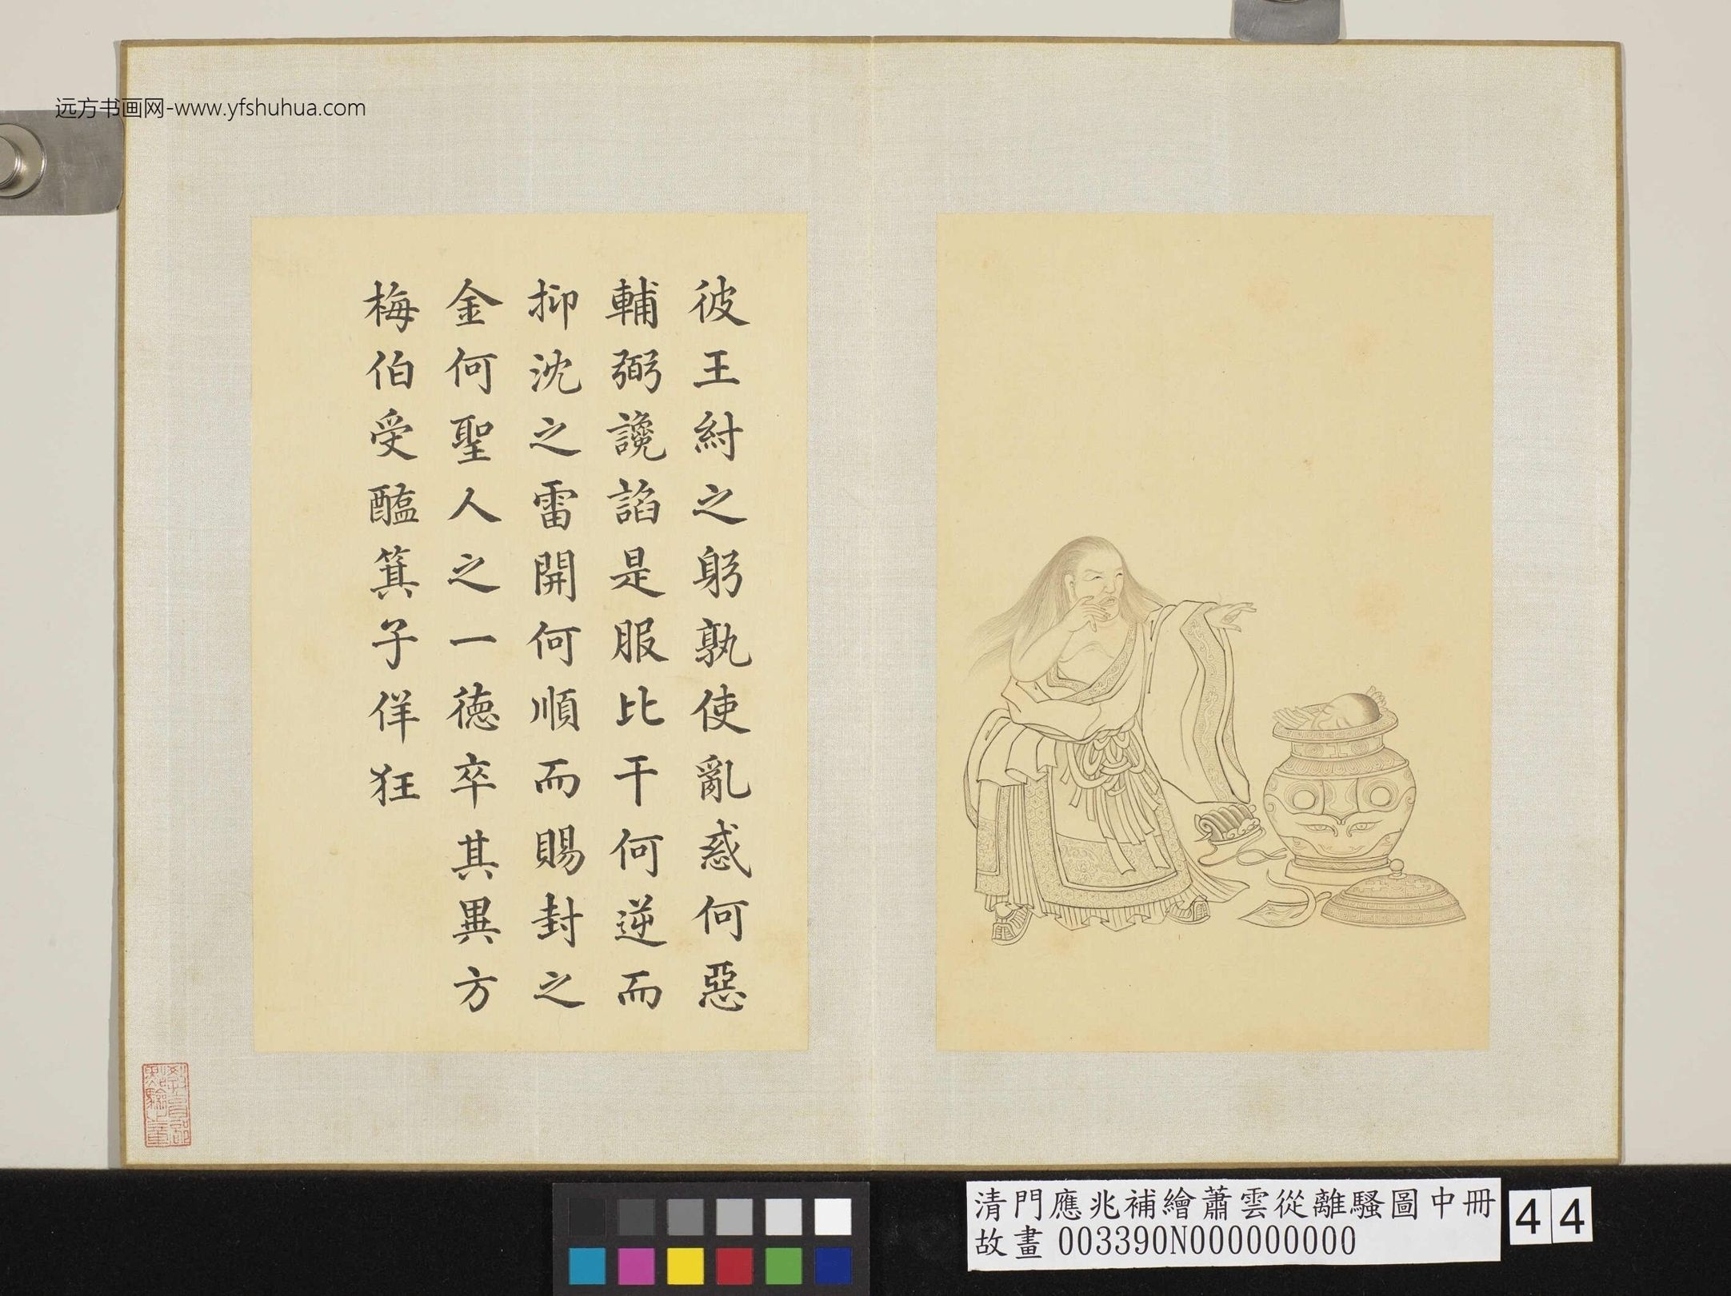 远方书画网-www.yfshuhua.com
彼王紂之躬孰使亂惑何惡
輔弼讒諂是服比干何逆而
抑沈之雷開何順而賜封之
金何聖人之一德卒其異方
梅伯受醢箕子佯狂
教育部點驗之章
清門應兆補繪蕭雲從離騷圖中冊
故畫 003390N000000000
44